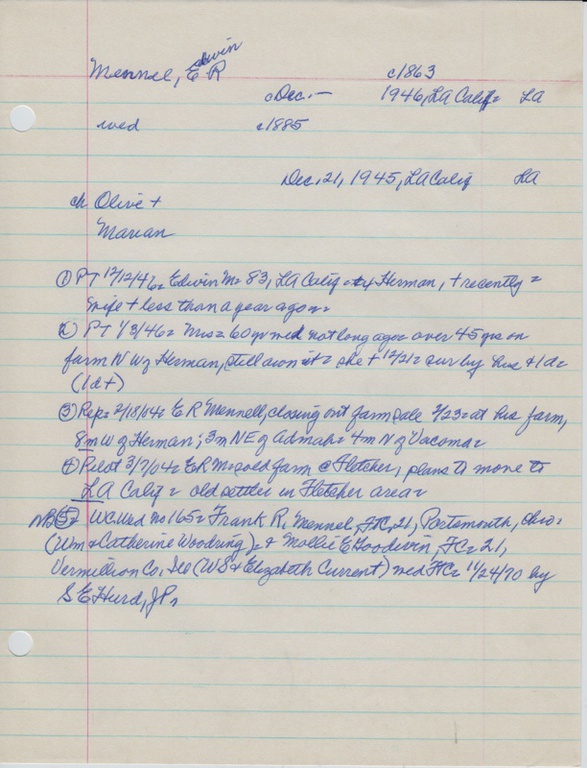 Mennel, E R Edwin c1863
Dec. – 1946, LA Calif LA
wed c1885
Dec, 21, 1945, LA Calif LA
ch Olive +
Marian
① PT 12/12/46 = Edwin M = 83, LA Calif Herman, + recently =
wife + less than a year ago =
② PT 1/3/46 = Mrs = 60 yr wed not long ago = over 45 yrs on
farm NW of Herman, still own it = she + 12/21 = sur by hus + 1d =
(1d+)
③ Rep = 2/18/04 = E R Mennell, closing out farm sale 2/23 = at his farm,
8m W of Herman; 3m NE of Admah = 4m N of Vacoma =
④ Pilot 3/7/04 = ER M = sold farm @ Fletcher, plans to move to
LA Calif = old settler in Fletcher area =
NB ⑤ = WC Wed no 165 = Frank R. Mennel, FTC, 21, Portsmouth, Ohio =
(Wm & Catherine Woodring) = & Mollie E Goodwin, FC = 21,
Vermillion Co. Ill (WS & Elizabeth Current) wed FTC = 11/24/70 by
S E Hurd, JP